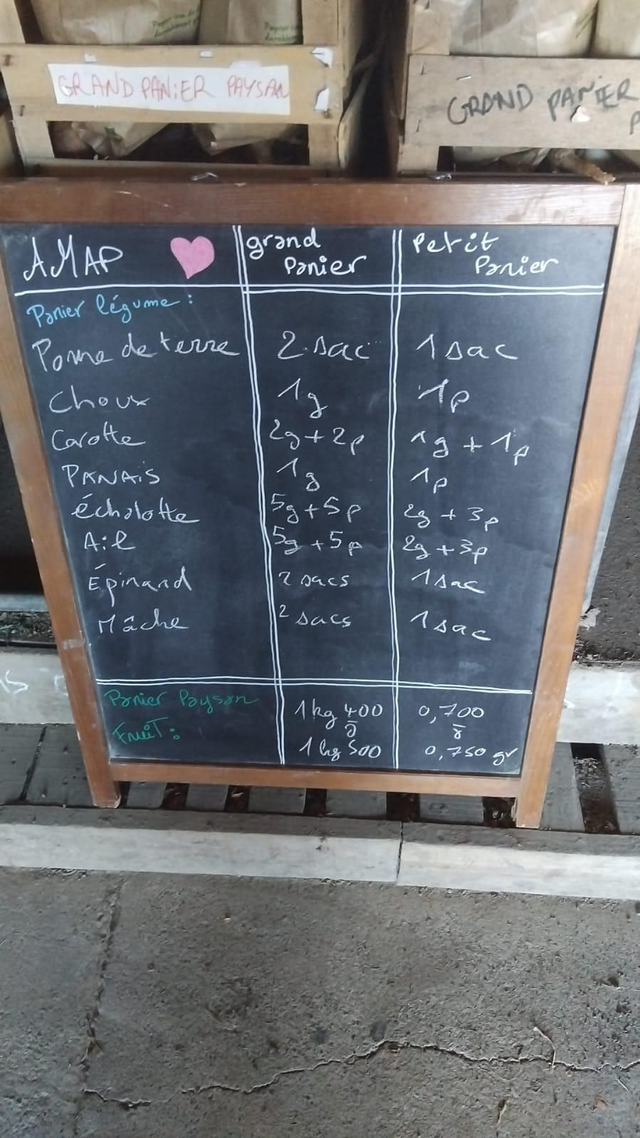 GRAND PANIER PAYSAN
GRAND PANIER
AMAP grand Panier Petit Panier
Panier légume :
Pome de terre 2 sac 1 sac
Choux 1g 1p
Carotte 2g + 2p 1g + 1p
PANAIS 1g 1p
échalotte 5g + 5p 2g + 3p
Ail 5g + 5p 2g + 3p
Épinard 2 sacs 1 sac
Mâche 2 sacs 1 sac
Panier Paysan 1 kg 400 0,700
Fruit : à à
1 kg 500 0,750 gr